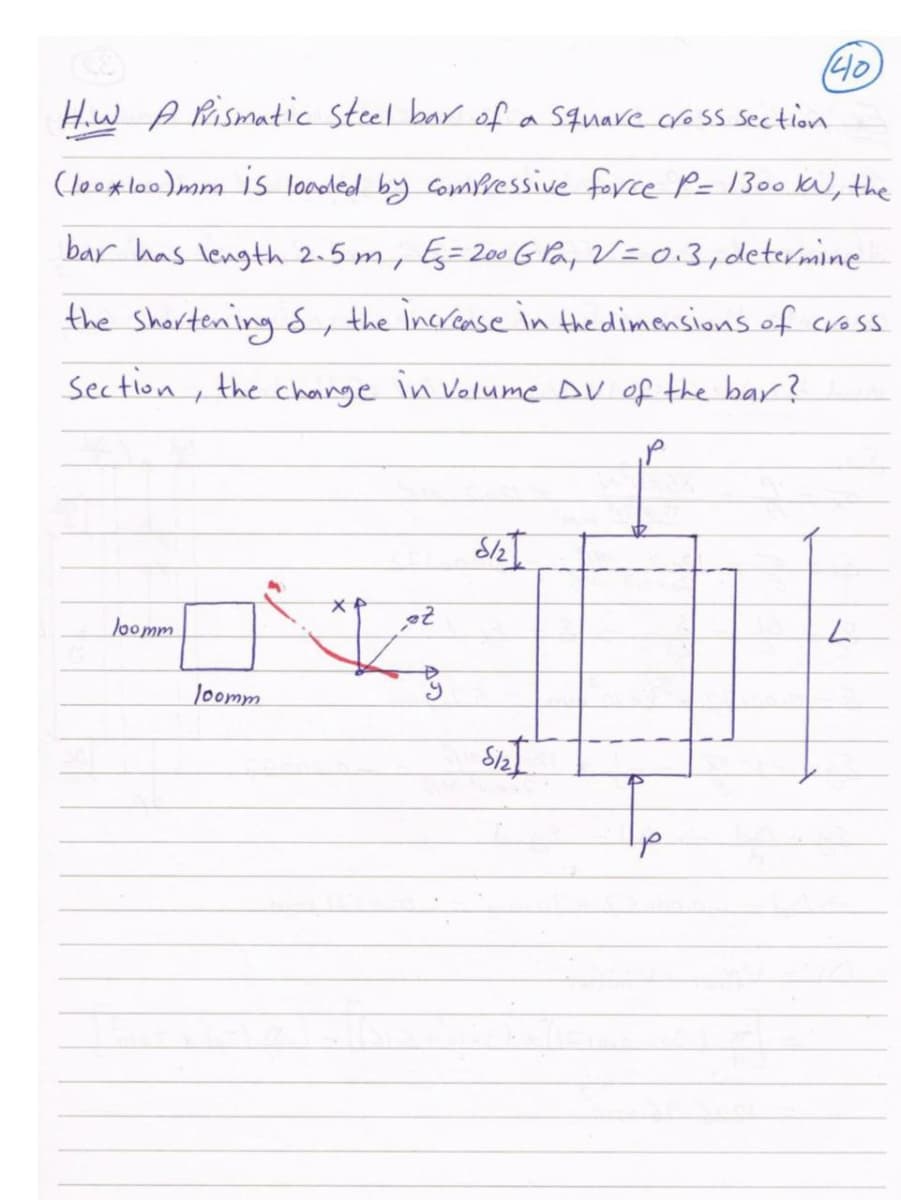 40
H.W A Prismatic steel bar of a square cross section
(100*100)mm is loaded by compressive force P= 1300 kN, the
bar has length 2.5 m, Es= 200 GPa, ν= 0.3, determine
the shortening δ, the increase in the dimensions of cross
section, the change in volume ΔV of the bar?
P
δ/2
x
z
100mm
L
y
100mm
δ/2
P